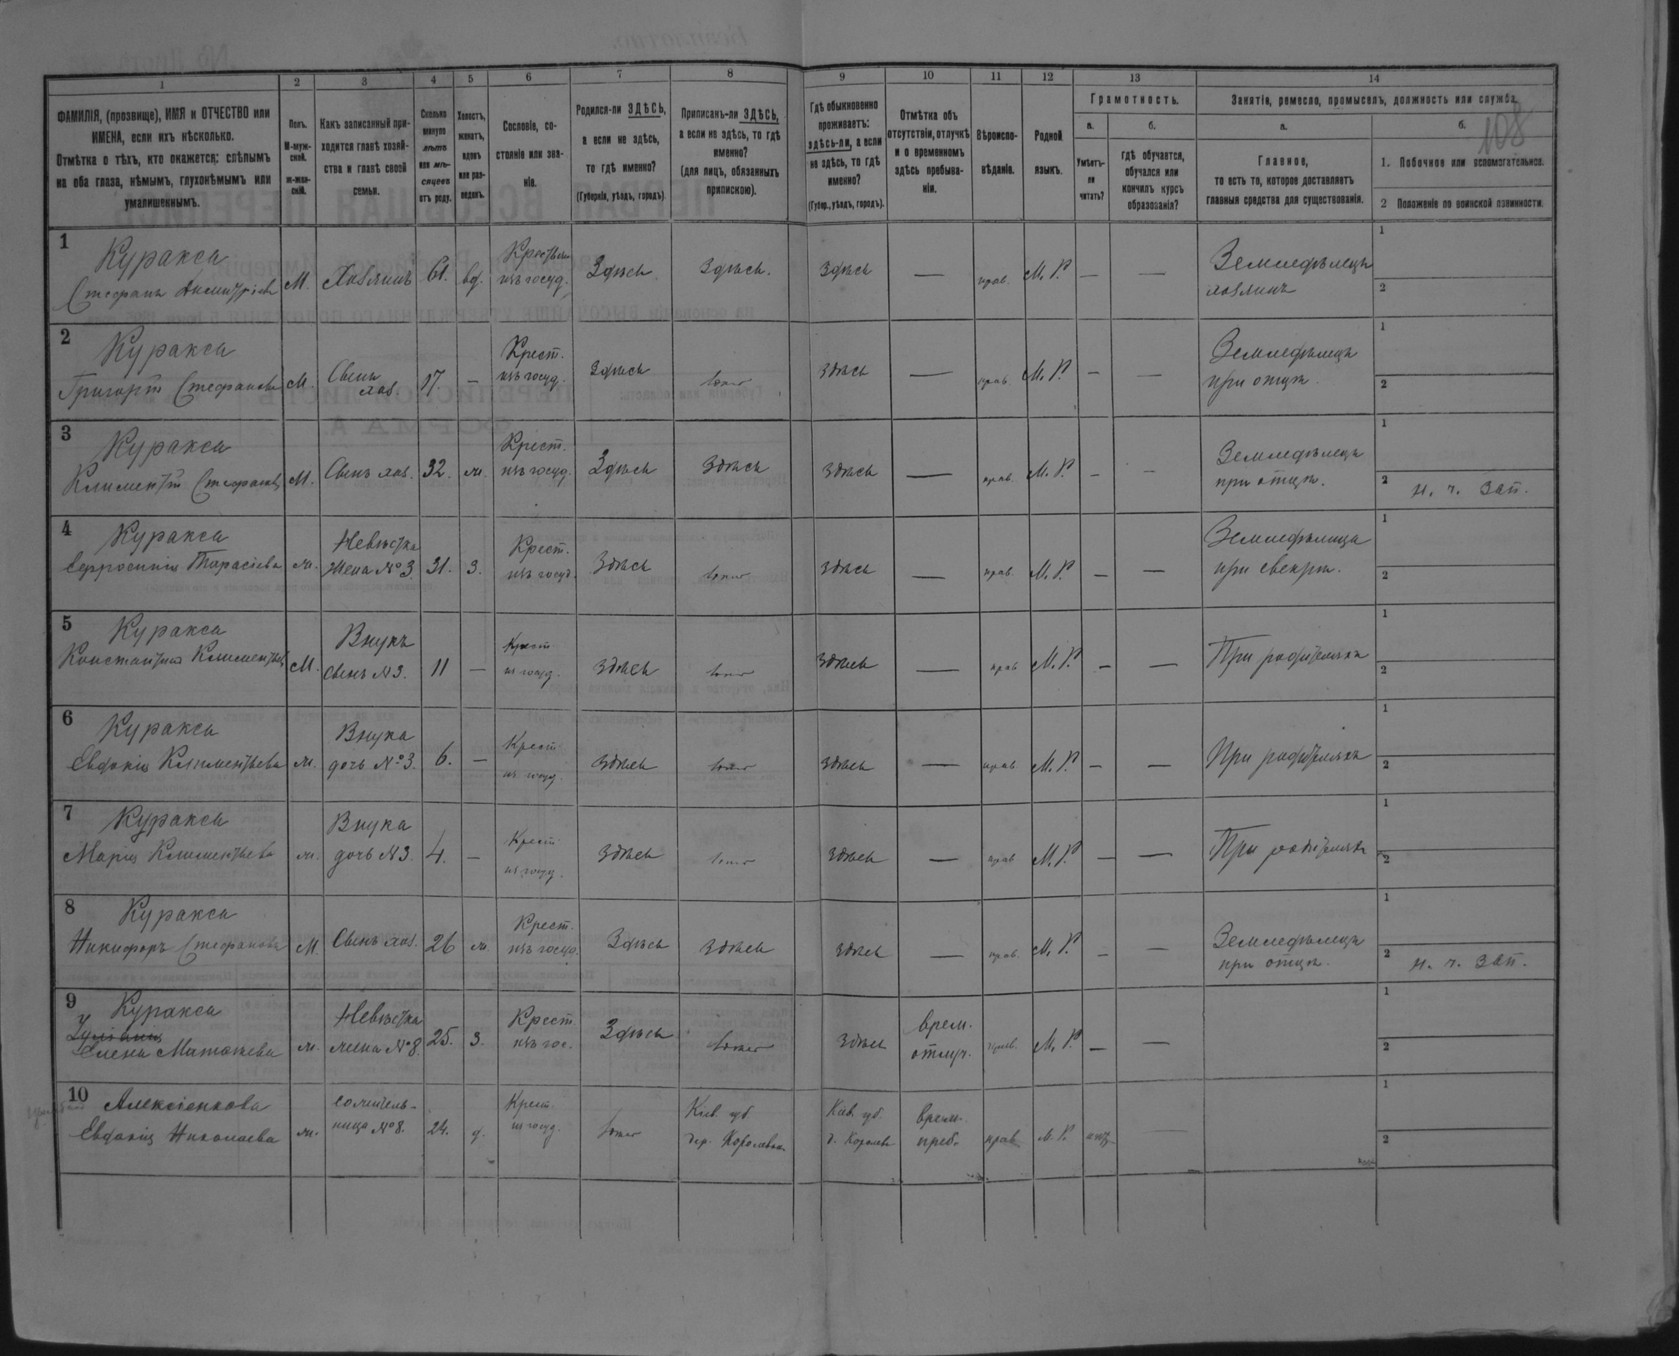 1 2 3 4 5 6 7 8 9 10 11 12 13 14
ФАМИЛІЯ, (прозвище), ИМЯ и ОТЧЕСТВО или
ИМЕНА, если ихъ нѣсколько.
Отмѣтка о тѣхъ, кто окажется: слѣпымъ
на оба глаза, нѣмымъ, глухонѣмымъ или
умалишеннымъ.
Полъ.
М-муж-
ской.
ж-жен-
скій.
Какъ записанный при-
ходится главѣ хозяй-
ства и главѣ своей
семьи.
Сколько
минуло
лѣтъ
или мѣ-
сяцевъ
отъ роду.
Холостъ,
женатъ,
вдовъ
или раз-
веденъ.
Сословіе, со-
стояніе или зва-
ніе.
Родился-ли ЗДѢСЬ,
а если не здѣсь,
то гдѣ именно?
(Губернія, уѣздъ, городъ)
Приписанъ-ли ЗДѢСЬ,
а если не здѣсь, то гдѣ
именно?
(для лицъ, обязанныхъ
припискою).
Гдѣ обыкновенно
проживаетъ:
здѣсь-ли, а если
не здѣсь, то гдѣ
именно?
(Губер., уѣздъ, городъ).
Отмѣтка объ
отсутствіи, отлучкѣ
и о временномъ
здѣсь пребыва-
ніи.
Вѣроиспо-
вѣданіе.
Родной
языкъ.
Грамотность.
а.
Умѣетъ-
ли
читать?
б.
Гдѣ обучается,
обучался или
кончилъ курсъ
образованія?
Занятіе, ремесло, промыселъ, должность или служба.
108
а.
Главное,
то есть то, которое доставляетъ
главныя средства для существованія.
б.
1. Побочное или вспомогательное.
2 Положеніе по воинской повинности.
1 Куракса
Стефанъ Димитріевъ М. Хозяинъ 61. вд. Крестьян. изъ госуд. Здѣсь Здѣсь. Здѣсь — прав. М. Р. — — Земледѣлецъ
хозяинъ
1
2
2 Куракса
Григорій Стефановъ М. Сынъ хоз. 17. — Крест. изъ госуд. Здѣсь здѣсь — прав. М. Р. — — Земледѣлецъ
при отцѣ.
1
2
3 Куракса
Климентій Стефановъ М. Сынъ хоз. 32. ж. Крест. изъ госуд. Здѣсь здѣсь здѣсь — прав. М. Р. — — Земледѣлецъ
при отцѣ.
1
2 н. ч. зап.
4 Куракса
Тарасіева ж. Невѣстка
жена № 3. 31. з. Крест. изъ госуд. Здѣсь здѣсь — прав. М. Р. — — Земледѣлица
при свекрѣ.
1
2
5 Куракса
Константинъ Климентьевъ М. Внукъ
сынъ № 3. 11 — Крест. из госуд. здѣсь здѣсь — прав. М. Р. — — При родителяхъ
1
2
6 Куракса
Евдокія Климентьева ж. Внука
дочь № 3. 6. — Крест. из госуд. здѣсь здѣсь — прав. М. Р. — — При родителяхъ
1
2
7 Куракса
Марія Климентьева ж. Внука
дочь № 3. 4. — Крест. из госуд. здѣсь здѣсь — прав М. Р. — — При родителяхъ
1
2
8 Куракса
Никифоръ Стефановъ М. Сынъ хоз. 26 ж Крест. изъ госуд. Здѣсь здѣсь здѣсь — прав. М. Р. — — Земледѣлецъ
при отцѣ.
1
2 н. ч. зап.
9 Куракса
Елена ж. Невѣстка
жена № 8. 25. з. Крест. изъ гос. Здѣсь здѣсь врем.
отлуч. прав. М. Р. — —
1
2
10 Алексіенкова
Евдокія Николаева ж. сожитель-
ница № 8. 24. д. Крест. из госуд. Кіев. уб. Кіев. уб. врем.
преб. прав. М. Р. —
1
2